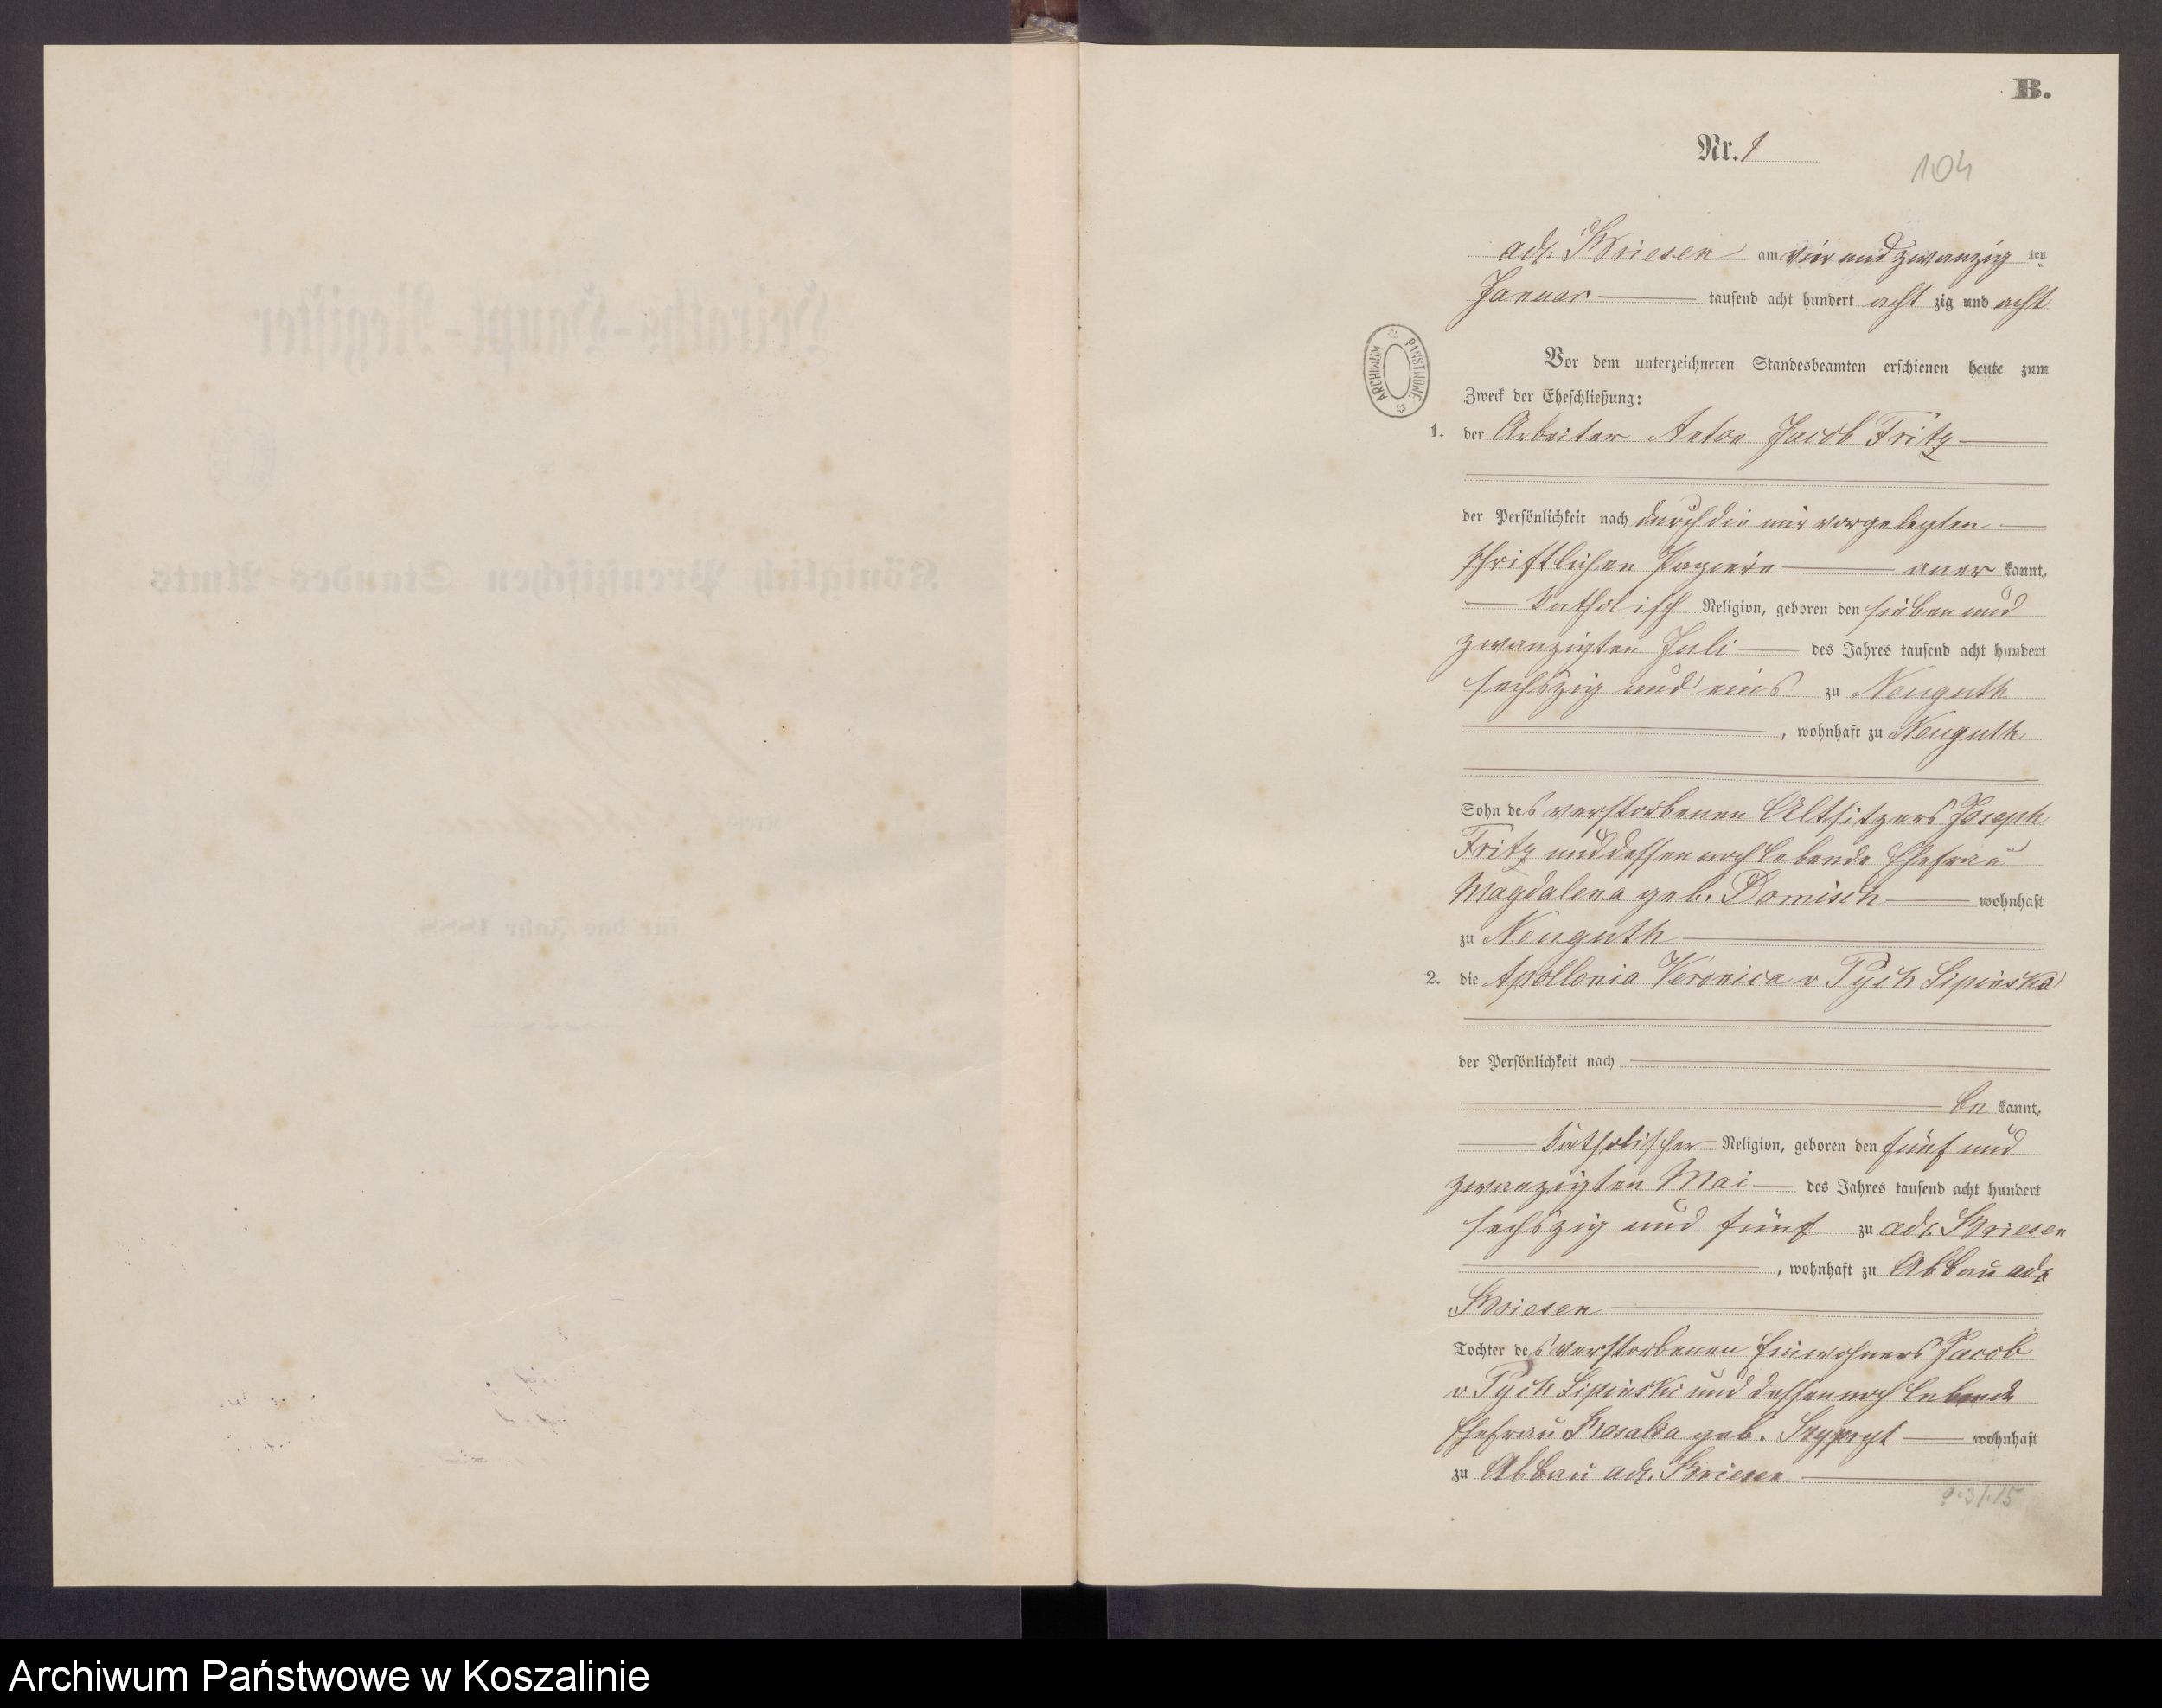 B.
Nr. 1
104
adl. Briesen am vier und zwanzig ten
Januar tausend acht hundert acht zig und acht
ARCHIWUM PAŃSTWOWE
Vor dem unterzeichneten Standesbeamten erschienen heute zum
Zweck der Eheschließung:
1. der Arbeiter Anton Jacob Fritz
der Persönlichkeit nach durch die mir vorgelegten
schriftlichen Papiere aner kannt,
katholisch Religion, geboren den sieben und
zwanzigten Juli des Jahres tausend acht hundert
sechszig und eins zu Neuguth
, wohnhaft zu Neuguth
Sohn des verstorbenen Altsitzers Joseph
Fritz und dessen noch lebende Ehefrau
Magdalena geb. Domisch wohnhaft
zu Neuguth
2. die Apollonia Veronica v Pych Lipinska
der Persönlichkeit nach
be kannt,
katholischer Religion, geboren den fünf und
zwanzigten Mai des Jahres tausend acht hundert
sechszig und fünf zu adl. Briesen
, wohnhaft zu Abbau adl
Briesen
Tochter des verstorbenen Einwohners Jacob
v Pych Lipinski und dessen noch lebende
Ehefrau Rosalia geb. wohnhaft
zu Abbau adl. Briesen
Heiraths-Haupt-Register
Königlich Preußischen Standes-Amts
für das Jahr 1888.
Archiwum Państwowe w Koszalinie